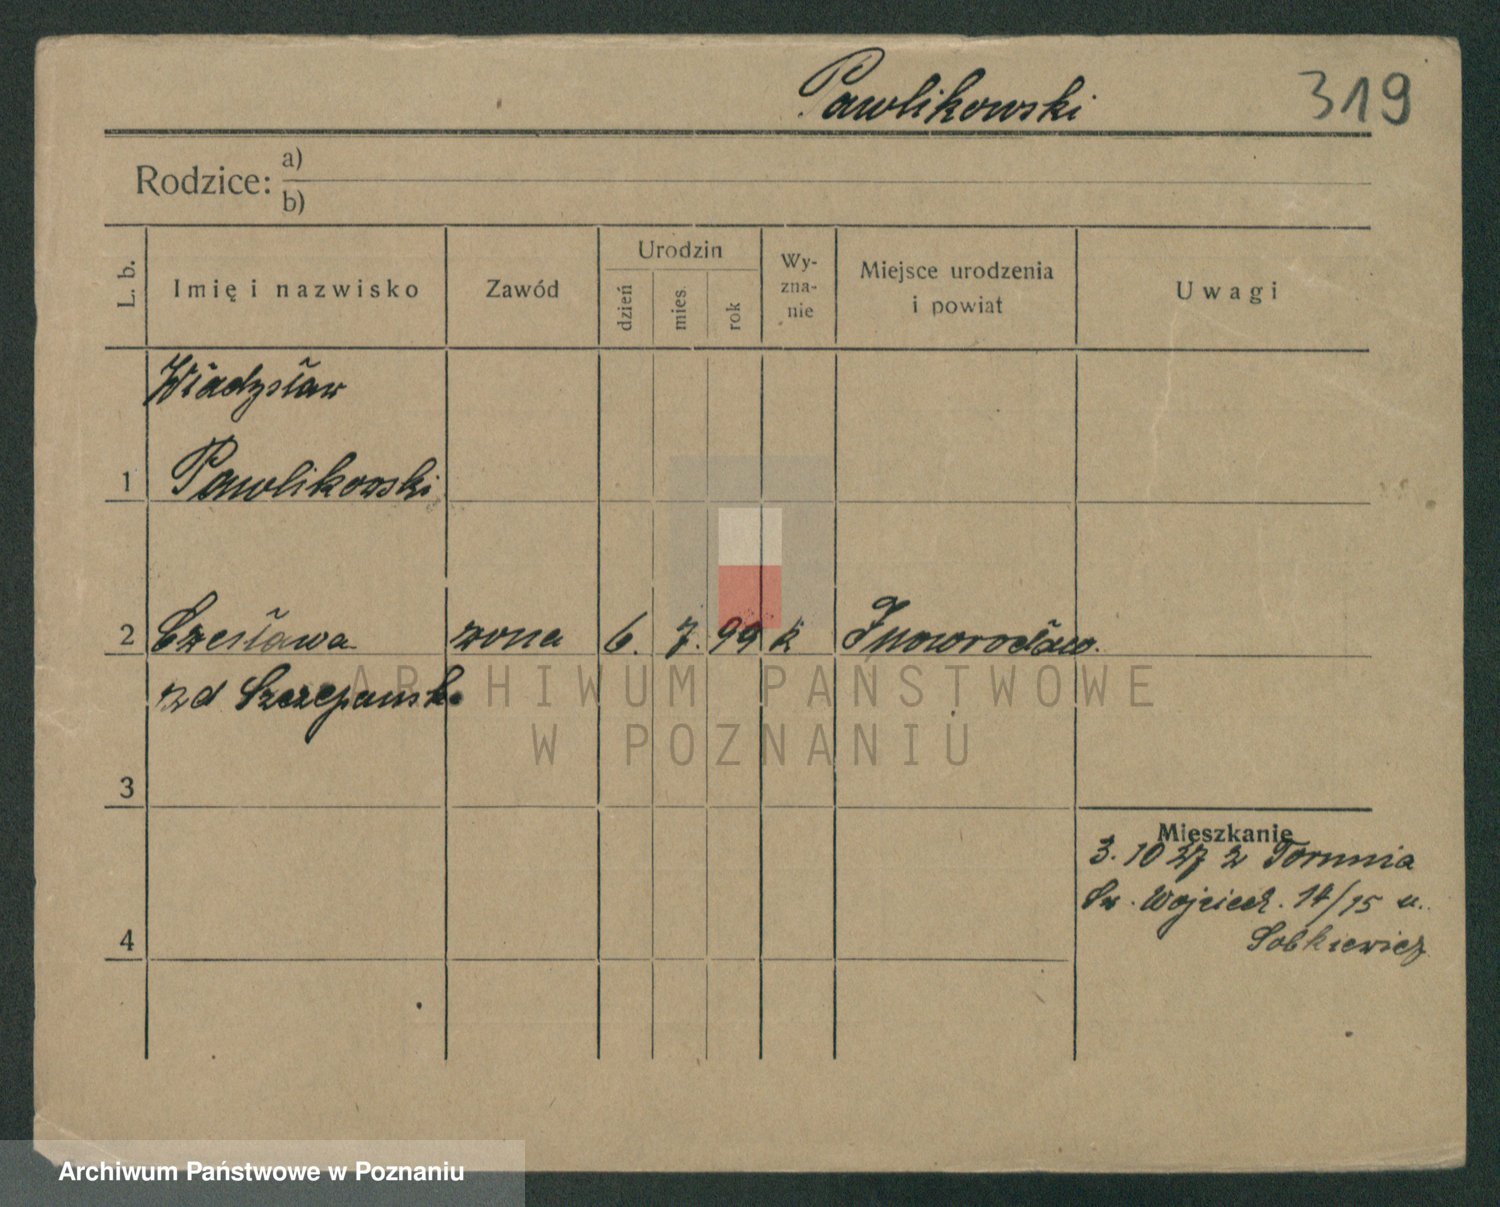 Pawlikowski 319
Rodzice: a)
b)
L. b. Imię i nazwisko Zawód Urodzin dzień mies. rok Wy-zna-nie Miejsce urodzenia i powiat Uwagi
Władysław
1 Pawlikowski
2 Czesława żona 6. 7. 99 k Inowrocław.
zd Szczepańsk
3
Mieszkanie
3. 10 27 z Torunia
Św. Wojciech. 14/15 u.
4
Sobkiewicz
ARCHIWUM PAŃSTWOWE
W POZNANIU
Archiwum Państwowe w Poznaniu